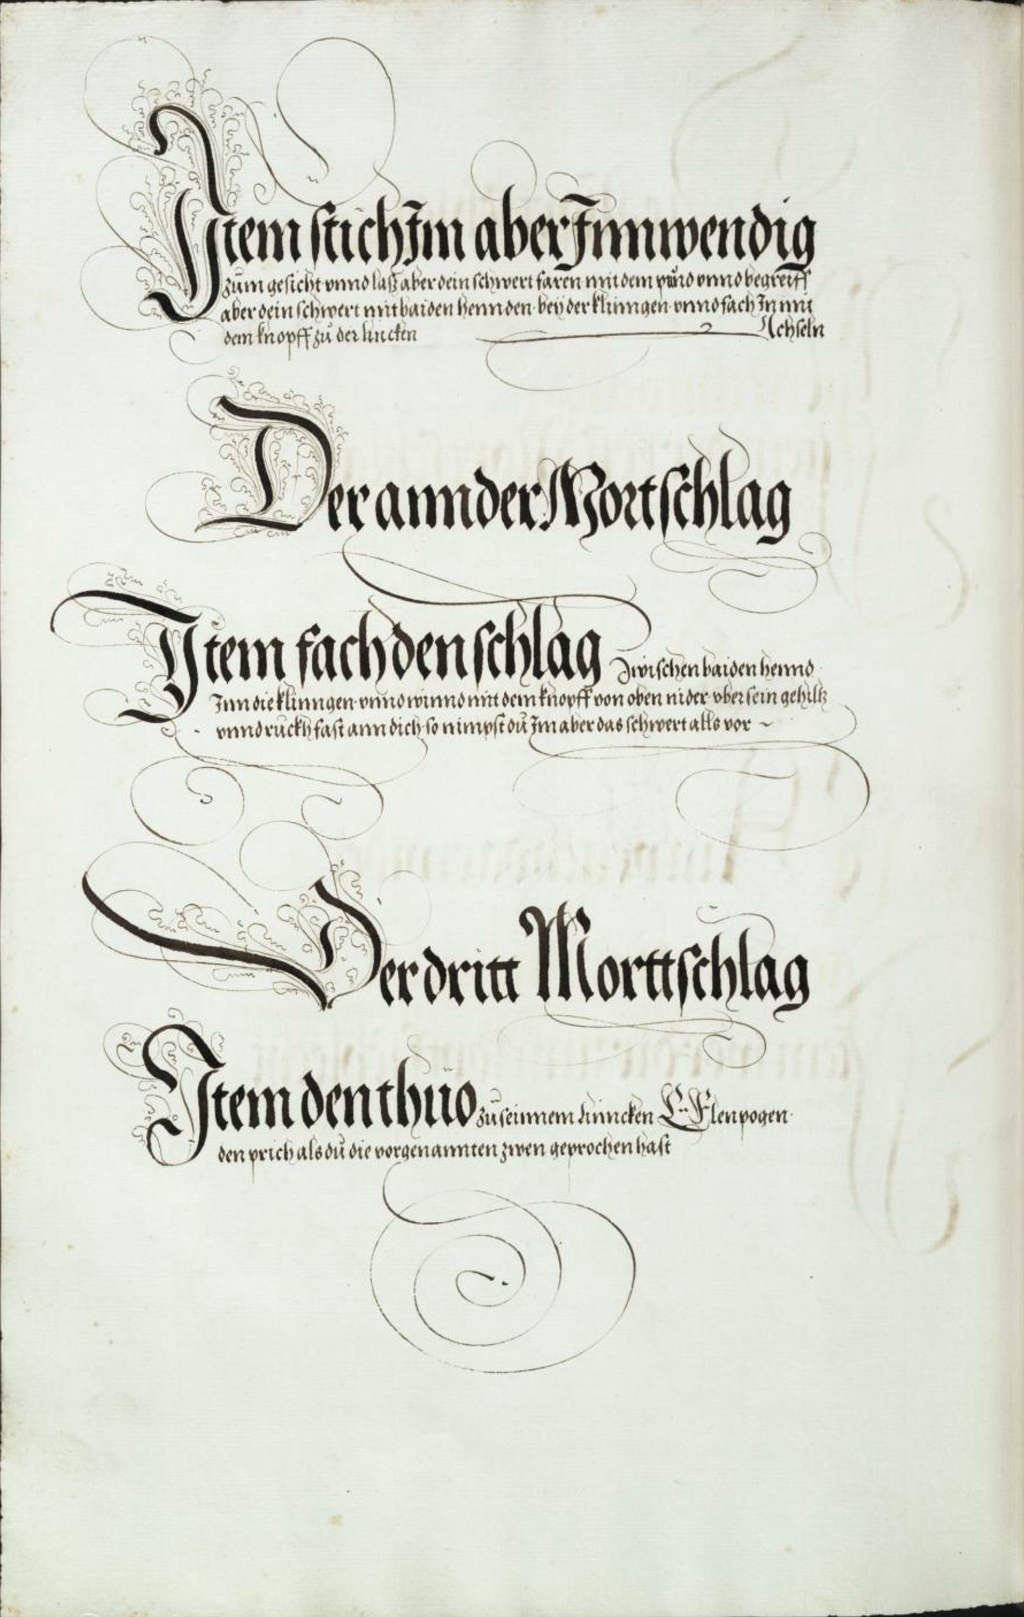 Item stich Im aber Innwendig
zum gesicht unnd laß aber dein schwert faren mit dem pund unnd begreiff
aber dein schwert mit baiden hennden bey der klinngen unnd fach In mit
dem knopff zů der lincken Achseln
Der annder Mortschlag
Item fach den schlag Zwischen baiden hennd
Inn die klinngen unnd winnd mit dem knopff von oben nider uber sein gehiltz
unnd ruckh fast ann dich so nimpst dů Im aber das schwert alls vor ~
Der dritt Morttschlag
Item den thuo zů seinnem linncken Elenpogen
den prich als dů die vorgenannten zwen geprochen hast